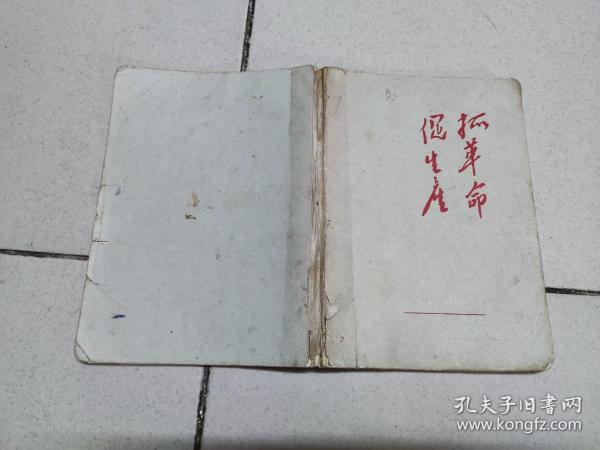 抓革命
促生産
孔夫子旧書网
www.kongfz.com